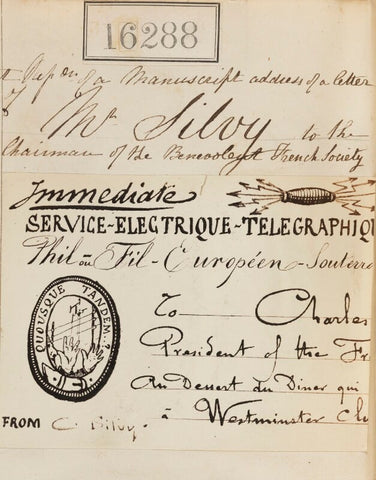 16288
of a Manuscript address of a letter
of
Mr Silvy to the
Chairman of the Benevolent French Society
Immediate
SERVICE-ELECTRIQUE-TELEGRAPHIQU
Phil ou Fil-Européen-Souterra
QUOUSQUE TANDEM?
To Charles
President of the Fr
Au Desert du Diner qui
à Westminster Clu
FROM C. Silvy.